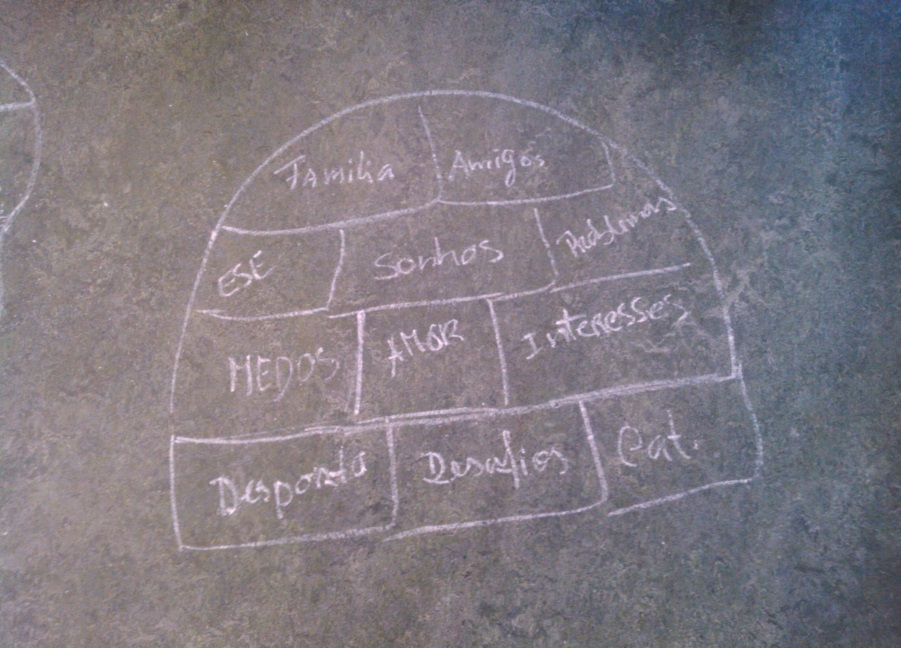 Familia Amigos
ESE Sonhos Problemas
MEDOS AMOR Interesses
Desporto Desafios Cat.